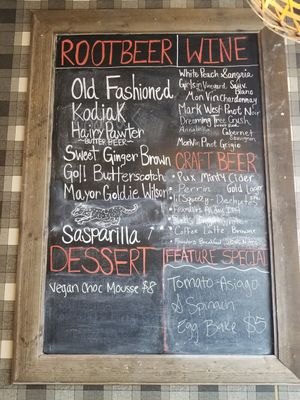 ROOTBEER
Old Fashioned
Kodiak
Hairy Pawter
~BUTTER BEER~
Sweet Ginger Brown
Goll Butterscotch
Mayor Goldie Wilson
Sasparilla
WINE
White Peach Sangria
Girls in Vineyard Sauv.
Blanc
Mon Vin Chardonnay
Mark West Pinot Noir
Dreaming Tree Crush
Cabernet
Sauvignon
Mon Vin Pinot Grigio
CRAFT BEER
Pux Minty Cider
Perrin Gold Lager
Lil Squeezy - Deschutes
Founders All Day IPA
Coffee Latte Browne
Founders Breakfast
DESSERT
Vegan Choc Mousse $8
FEATURE SPECIAL
Tomato-Asiago
& Spinach
Egg Bake $5